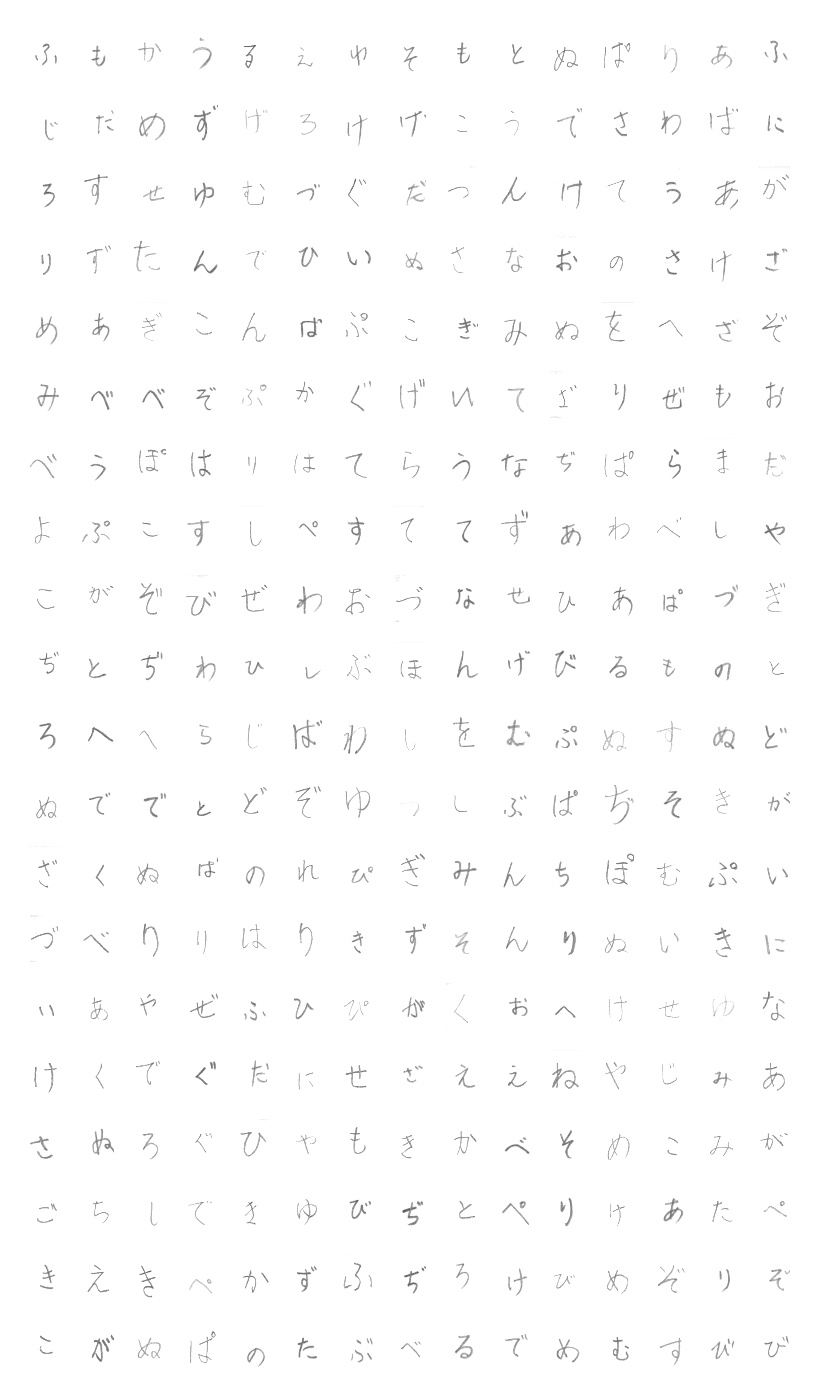 ふもかうるえゆそもとぬぱりあふ
じだめずげろけげこうでさわばに
ろすせゆむづぐだつんけてうあが
りずたんでひいぬさなおのさけざ
めあぎこんばぷこぎみぬをへざぞ
みべべぞぷかぐげいてどりぜもお
べうぽはりはてらうなぢぱらまだ
よぷこすしぺすててずあわべしや
こがぞびぜわおづなせひあぱづぎ
ぢとぢわひしぶほんげびるものと
ろへへらじばわしをむぷぬすぬど
ぬででとどぞゆっしぶぱぢそきが
ざくぬばのれぴぎみんちぽむぷい
づべりりはりきずそんりぬいきに
いあやぜふひぴがくおへけせゆな
けくでぐだにせざええねやじみあ
さぬろぐひやもきかべそめこみが
ごちしできゆびぢとぺりけあたぺ
きえきぺかずふぢろけびめぞりぞ
こがぬぱのたぶべるでめむすびび